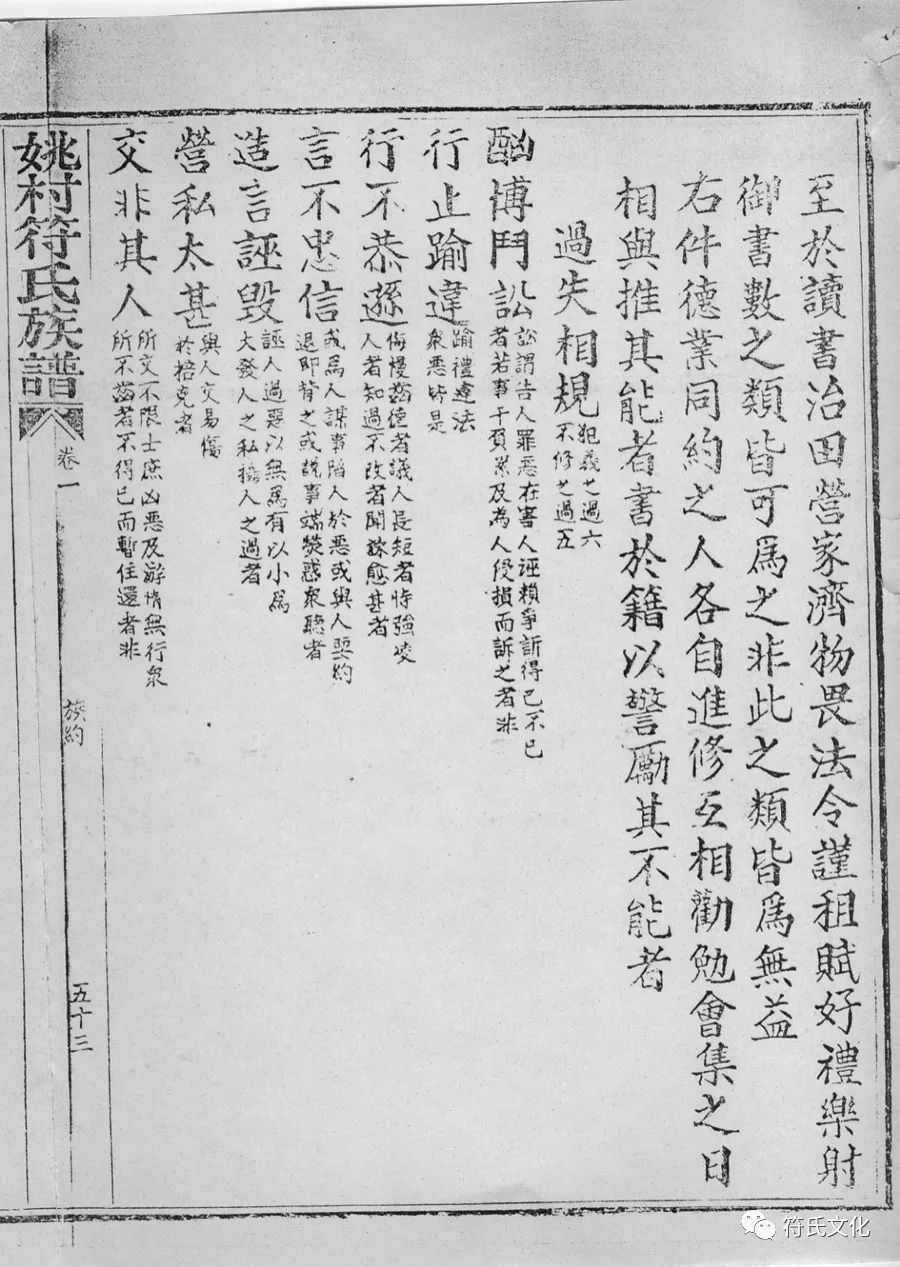 至於讀書治田營家濟物畏法令謹租賦好禮樂射
御書數之類皆可爲之非此之類皆爲無益
右件德業同約之人各自進修互相勸勉會集之日
相與推其能者書於籍以警勵其不能者
過失相規
犯義之過六
不修之過五
酗博鬥訟
訟謂告人罪惡在害人誣賴爭訴得已不已
者若事干負累及為人侵損而訴之者非
行止踰違
踰禮違法
衆惡皆是
行不恭遜
侮慢齒德者議人長短者恃強凌
人者知過不改者聞諫愈甚者
言不忠信
或爲人謀事陷人於惡或與人約
退即背之或說事端熒惑衆聽者
造言誣毀
誣人過惡以無爲有以小爲
大發人之私揚人之過者
營私太甚
與人交易傷
於掊克者
交非其人
所交不限士庶凶惡及游惰無行衆
所不齒者不得已而暫住還者非
姚村符氏族譜
卷一
族約
五十三
符氏文化